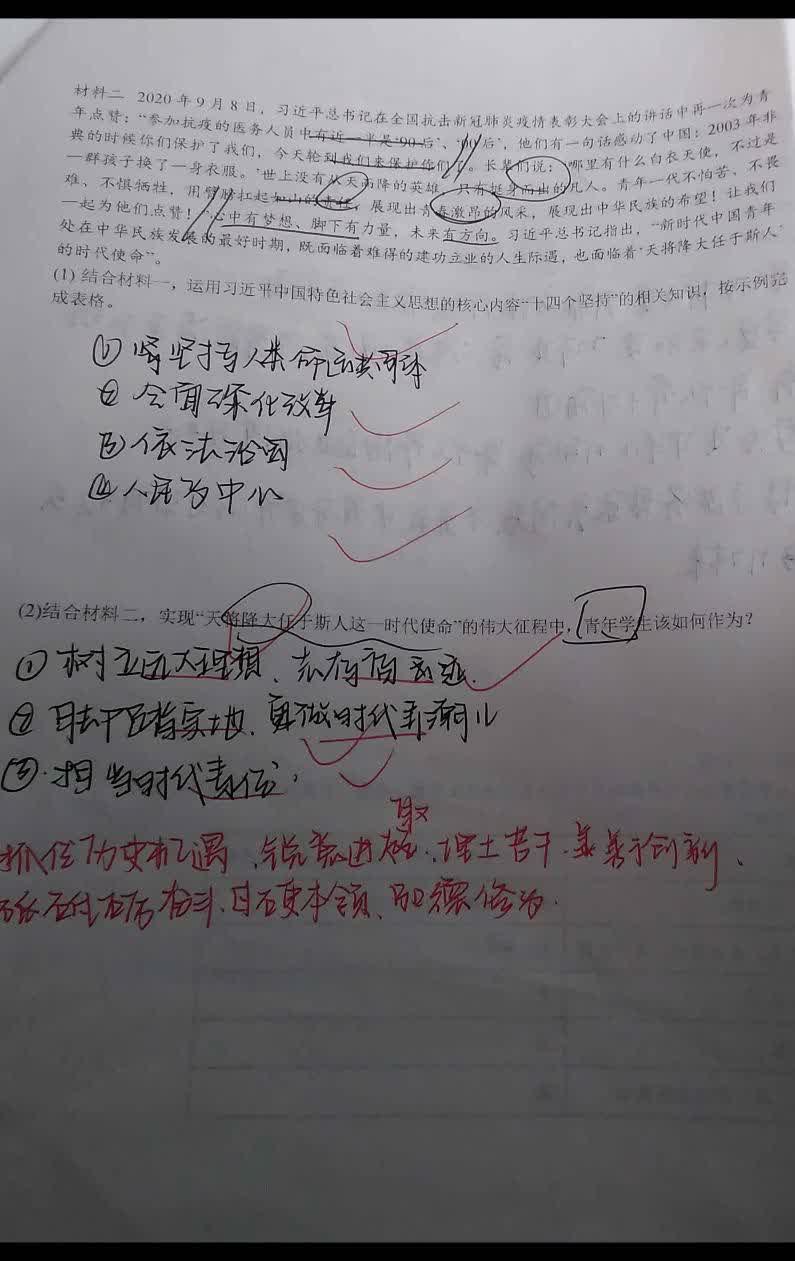 材料二 2020年9月8日，习近平总书记在全国抗击新冠肺炎疫情表彰大会上的讲话中再一次为青
年点赞：“参加抗疫的医务人员中有近一半是‘90后’、‘00后’，他们有一句话感动了中国：2003年非
典的时候你们保护了我们，今天轮到我们来保护你们了。长辈们说：‘哪里有什么白衣天使，不过是
一群孩子换了一身衣服。’世上没有从天而降的英雄，只有挺身而出的凡人。青年一代不怕苦、不畏
难、不惧牺牲，用臂膀扛起如山的责任，展现出青春激昂的风采，展现出中华民族的希望！让我们
一起为他们点赞！”“心中有梦想、脚下有力量，未来有方向。习近平总书记指出，“新时代中国青年
处在中华民族发展的最好时期，既面临着难得的建功立业的人生际遇，也面临着‘天将降大任于斯人’
的时代使命”。
(1) 结合材料一，运用习近平中国特色社会主义思想的核心内容“十四个坚持”的相关知识，按示例完
成表格。
① 坚持人类命运共同体
② 全面深化改革
③ 依法治国
④ 人民为中心
(2)结合材料二，实现“天将降大任于斯人这一时代使命”的伟大征程中，青年学生该如何作为？
① 树立远大理想、志存高远.
② 脚踏实地.勇做时代弄潮儿
③.担当时代责任.
取
抓住历史机遇、锐意进、埋头苦干.善于创新、
砥砺奋斗.过硬本领、品德修为.